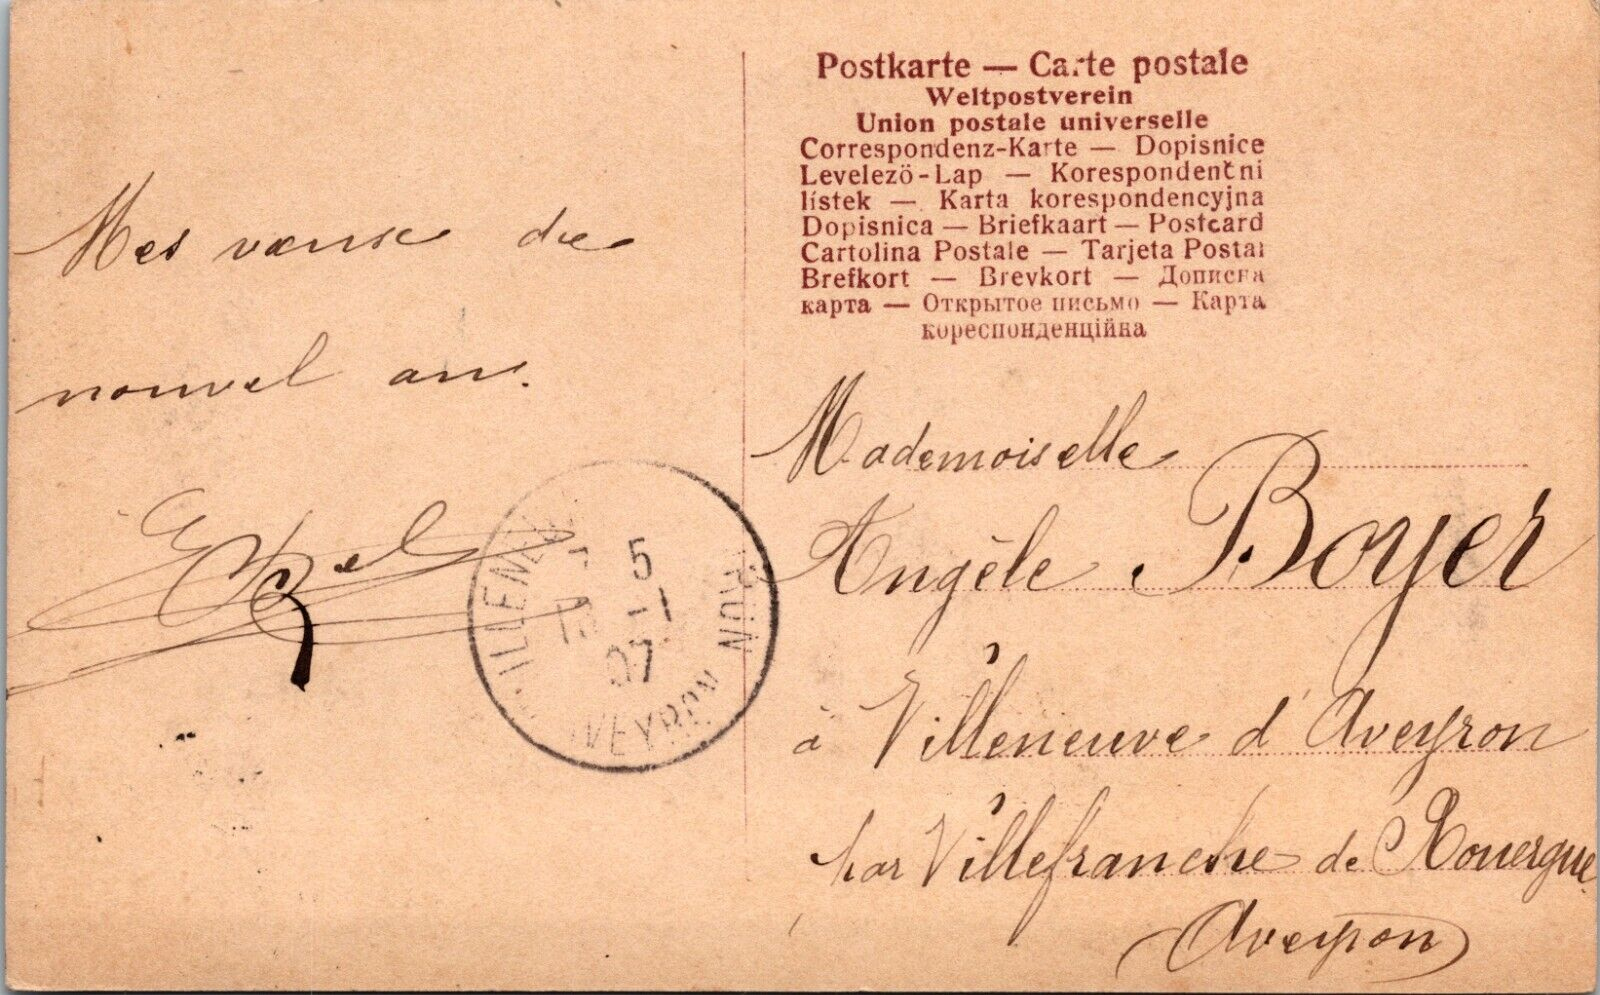 Postkarte — Carte postale
Weltpostverein
Union postale universelle
Correspondenz-Karte — Dopisnice
Levelezö-Lap — Korespondenčni
lístek — Karta korespondencyjna
Dopisnica — Briefkaart — Postcard
Cartolina Postale — Tarjeta Postal
Brefkort — Brevkort — Дописна
карта — Открытое письмо — Карта
кореспонденційна
Mes vœux de
nouvel an.
5
13 -1
07
VILLENEUVE
AVEYRON
Mademoiselle
Angèle Boyer
à Villeneuve d'Aveyron
par Villefranche de Rouergue
Aveyron